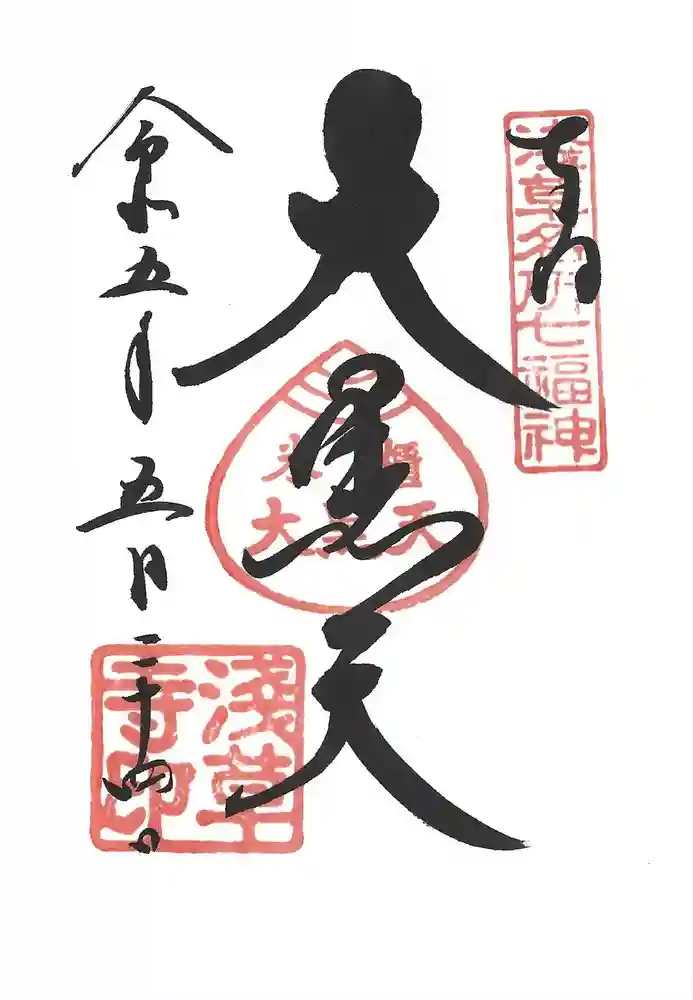 奉拝
浅草名所七福神
大黒天
大黒天
令和五年五月二十四日
淺草
寺印